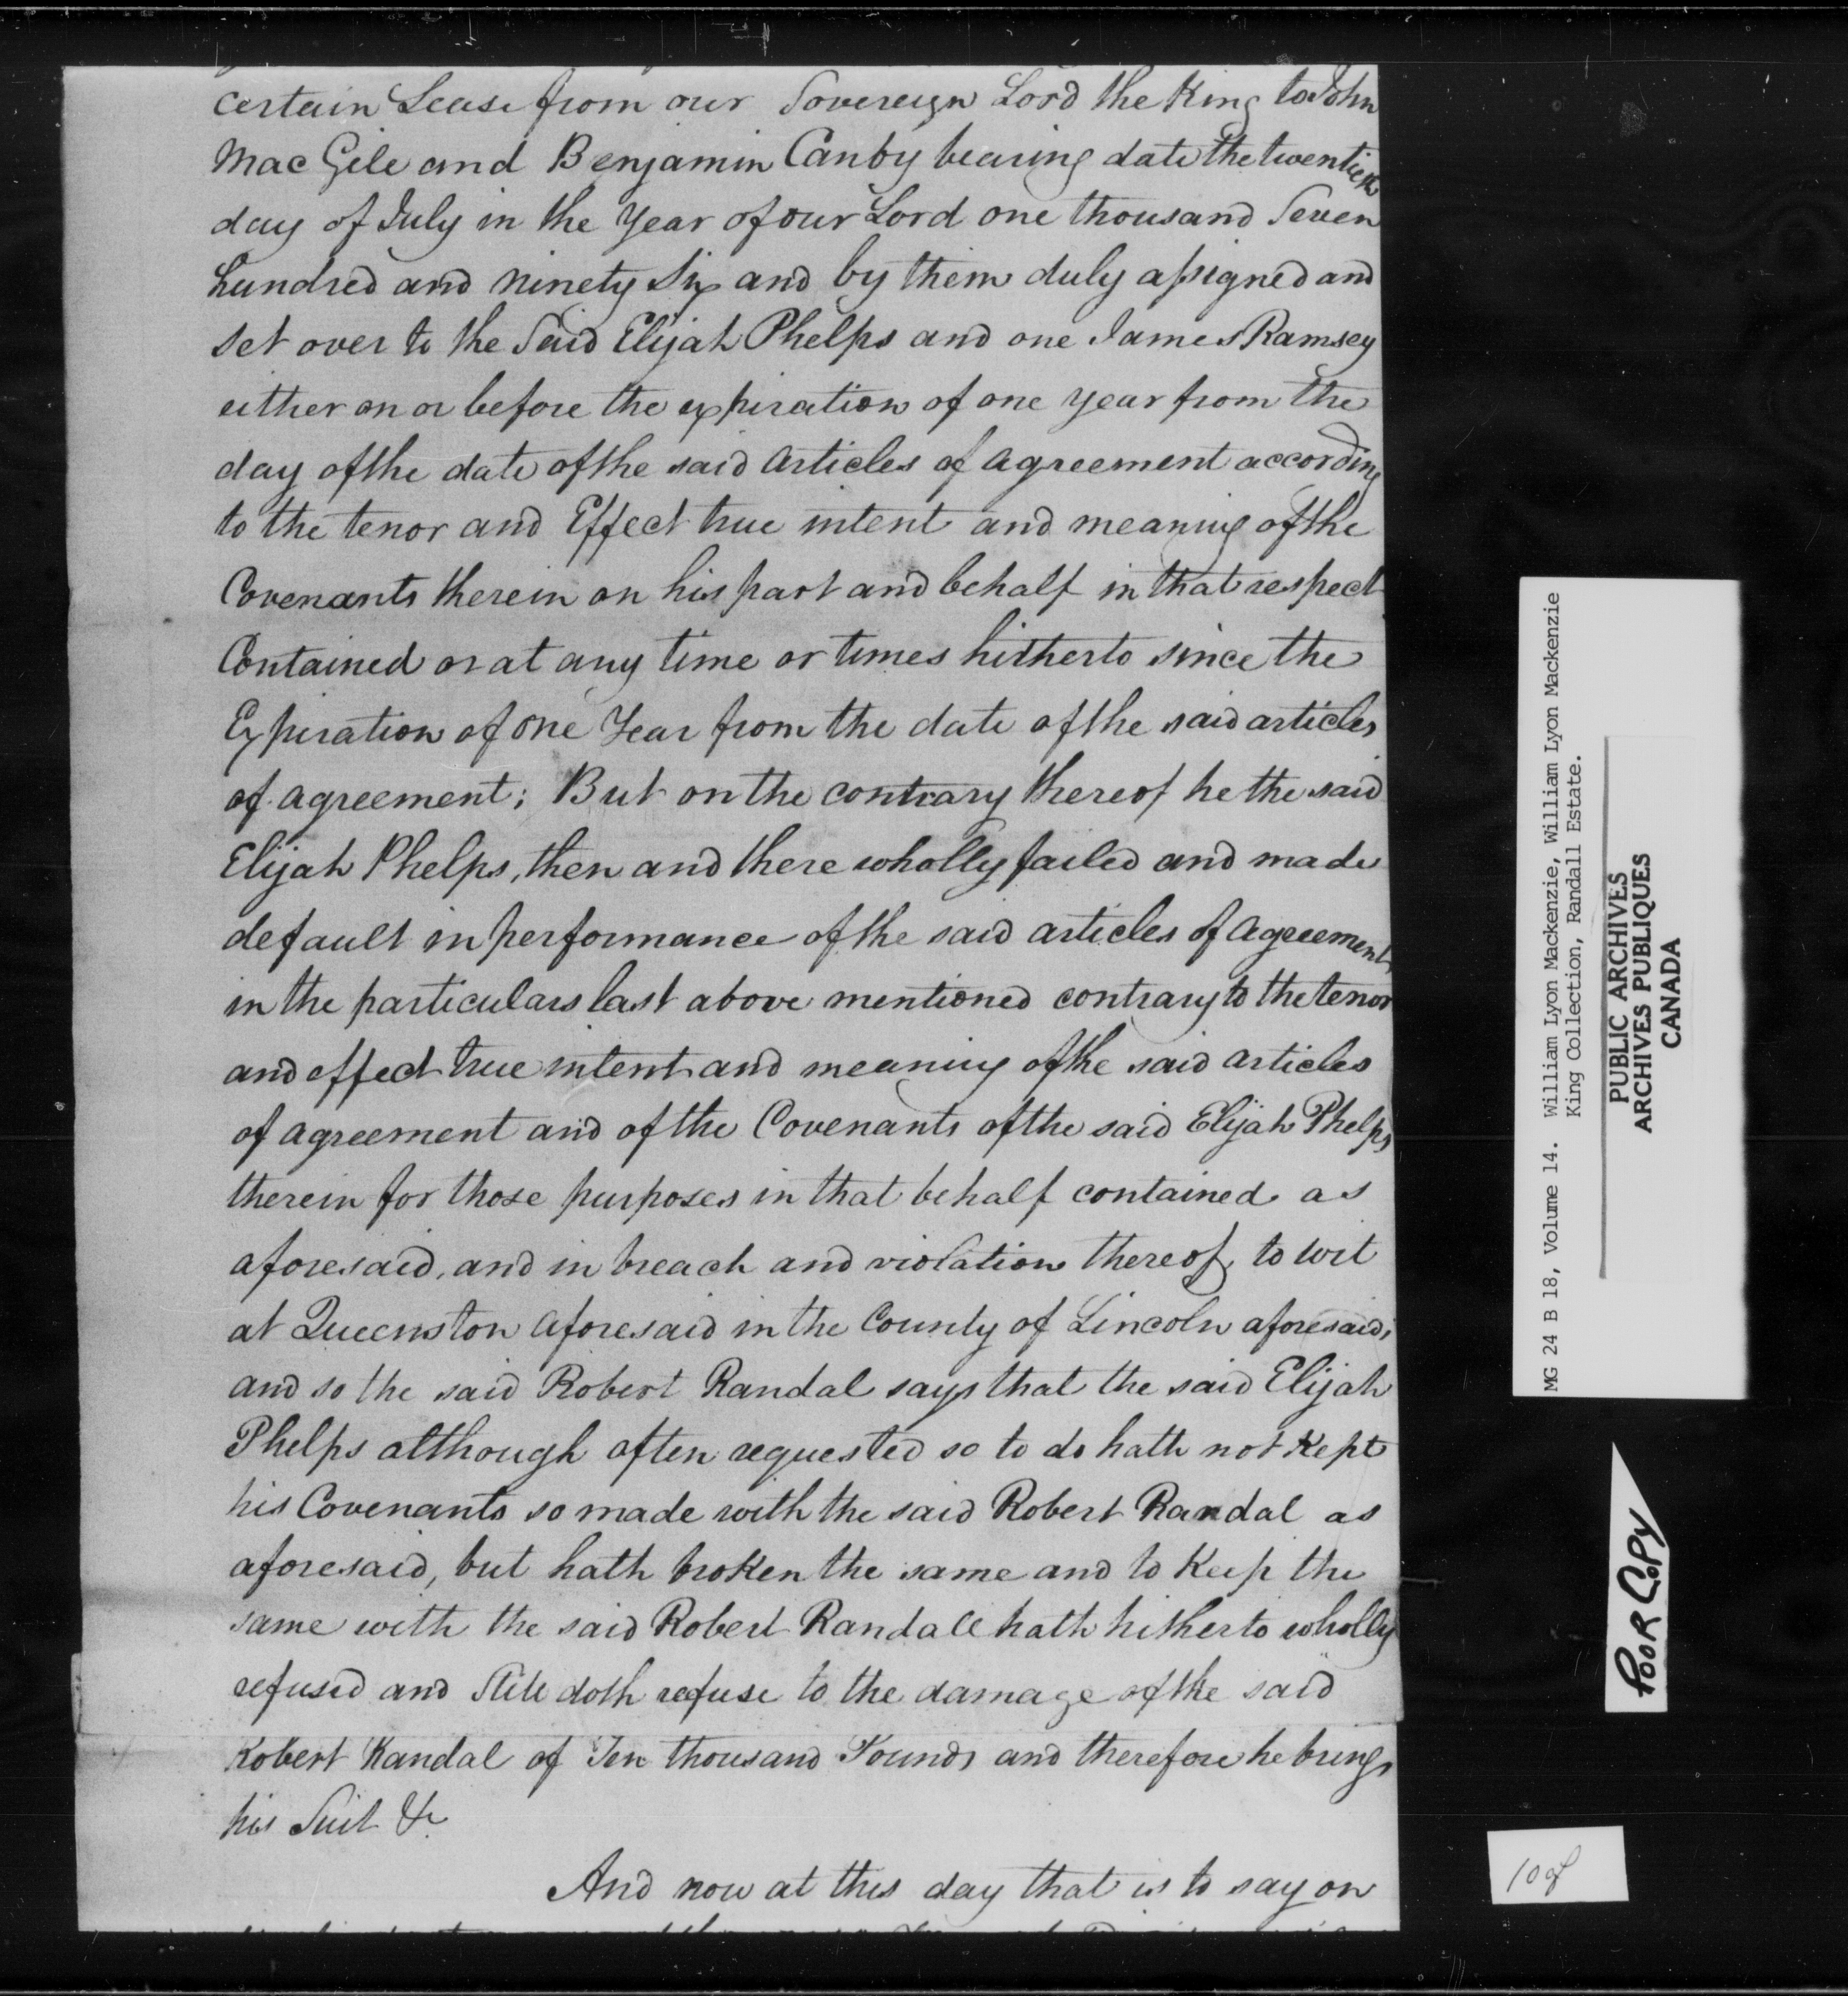 certain Lease from our Sovereign Lord the King to John
Mac Gile and Benjamin Canby bearing date the twentieth
day of July in the Year of our Lord one thousand Seven
hundred and ninety Six and by them duly assigned and
set over to the Said Elijah Phelps and one James Ramsey
either on or before the expiration of one year from the
day of the date of the said articles of agreement according
to the tenor and Effect true intent and meaning of the
Covenants therein on his part and behalf in that respect
Contained or at any time or times hitherto since the
Expiration of one Year from the date of the said articles
of agreement; But on the contrary thereof he the said
Elijah Phelps, then and there wholly failed and made
default in performance of the said articles of agreement,
in the particulars last above mentioned contrary to the tenor
and effect true intent and meaning of the said articles
of agreement and of the Covenants of the said Elijah Phelps
therein for those purposes in that behalf contained as
aforesaid, and in breach and violation thereof, to wit
at Queenston aforesaid in the County of Lincoln aforesaid,
and so the said Robert Randal says that the said Elijah
Phelps although often requested so to do hath not Kept
his Covenants so made with the said Robert Randal as
aforesaid, but hath broken the same and to Keep the
same with the said Robert Randall hath hitherto wholly
refused and Still doth refuse to the damage of the said
Robert Randal of Ten thousand Pounds and therefore he brings
his Suit &c
And now at this day that is to say on
MG 24 B 18, Volume 14. William Lyon Mackenzie, William Lyon Mackenzie
King Collection, Randall Estate.
PUBLIC ARCHIVES
ARCHIVES PUBLIQUES
CANADA
POOR COPY